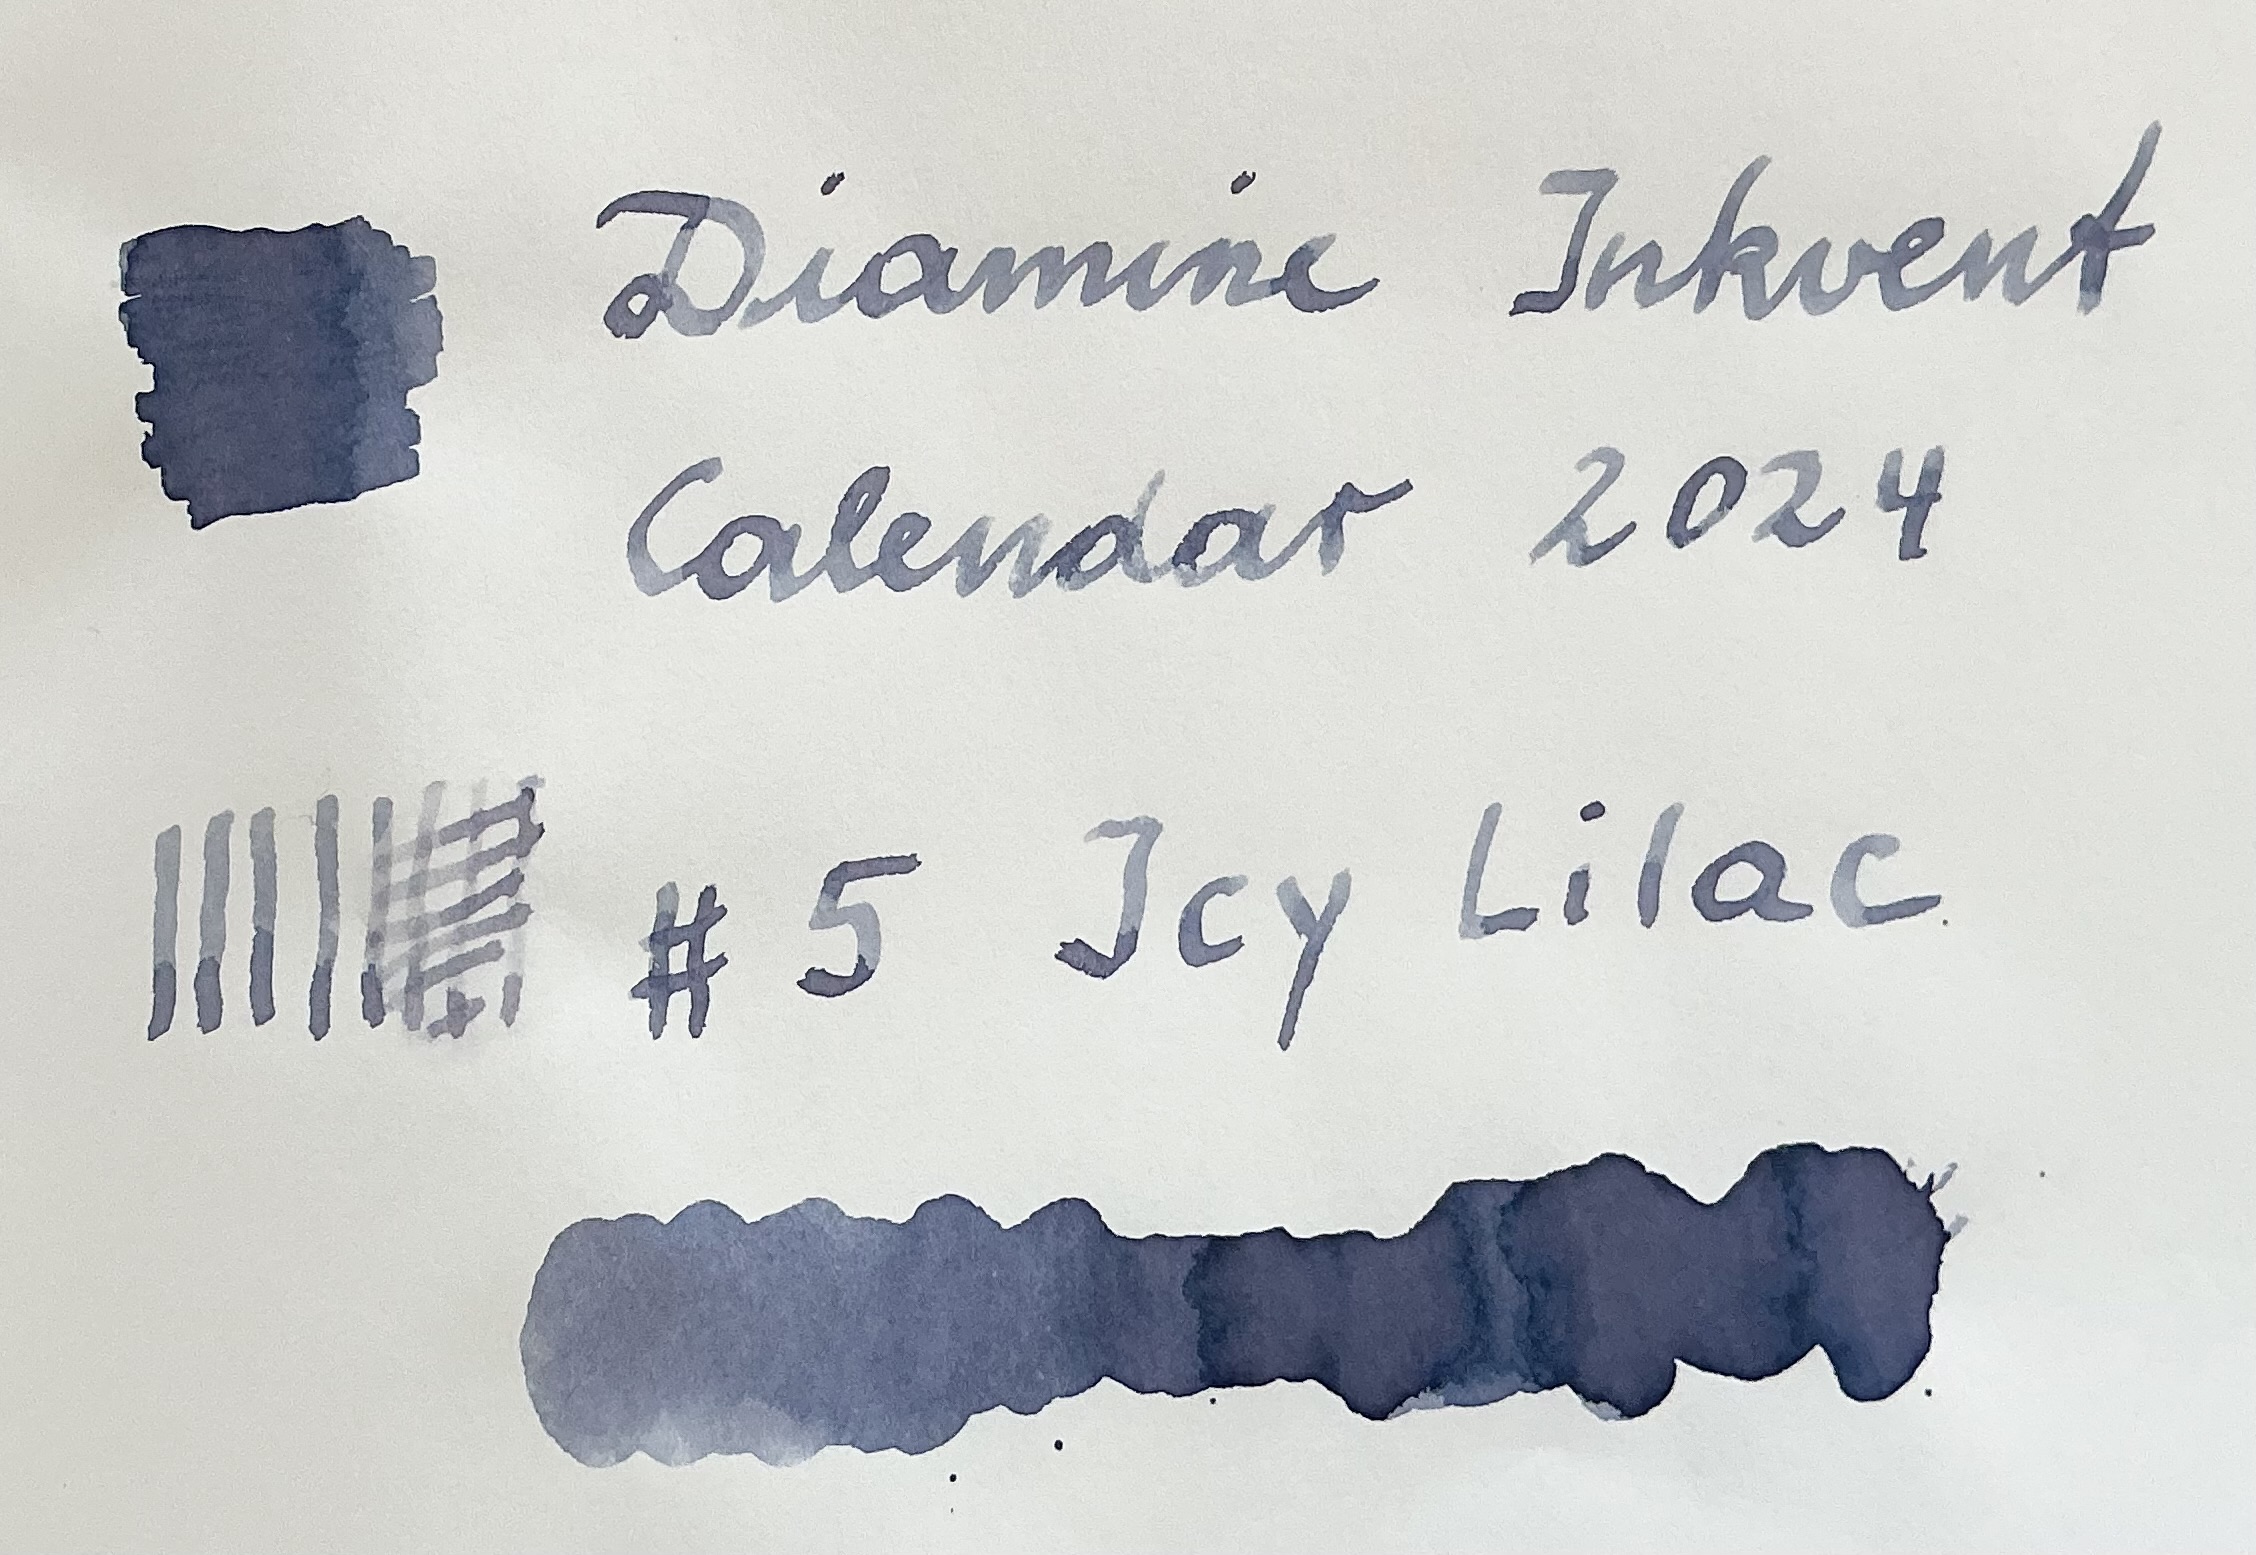 Diamine Inkvent
Calendar 2024
# 5 Icy Lilac